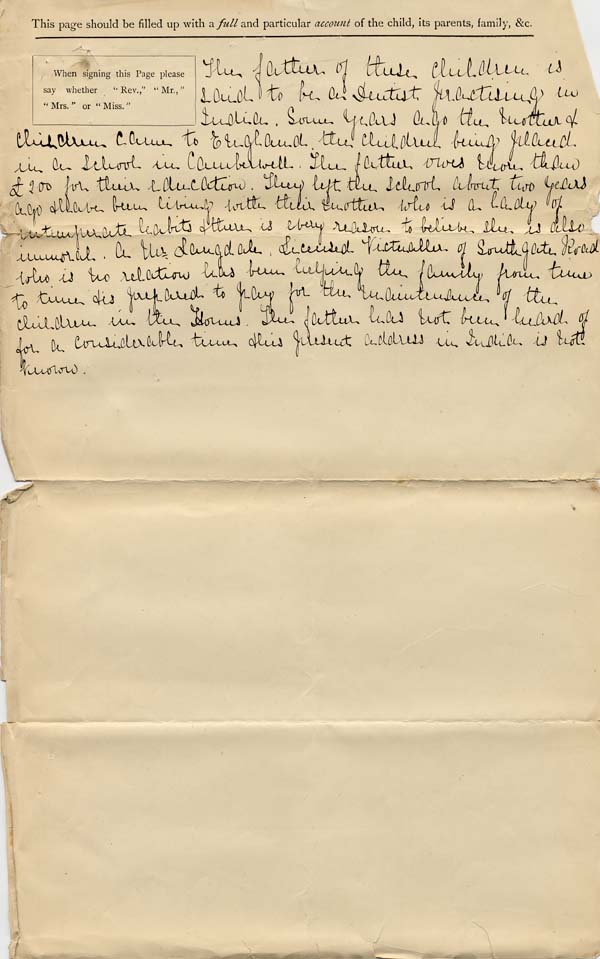 This page should be filled up with a full and particular account of the child, its parents, family, &c.
When signing this Page please
say whether "Rev.," "Mr.,"
"Mrs." or "Miss."
The father of these children is
said to be a Dentist practising in
India. Some years ago the mother &
children came to England, the children being placed
in a school in Camberwell. The father owes more than
£200 for their education. They left the school about two years
ago & have been living with their mother who is a lady of
intemperate habits & there is every reason to believe she is also
immoral. A Mr. Langdale, Licensed Victualler of Southgate Road
who is no relation has been helping the family from time
to time & is prepared to pay for the maintenance of the
children in the Homes. The father has not been heard of
for a considerable time & his present address in India is not
known.